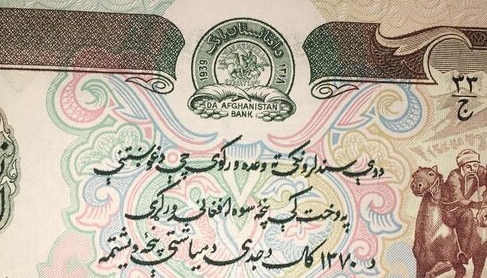 د افغانستان بانک
1939 ۱۳۱۸
DA AFGHANISTAN
BANK
۳۳
ج
ددې سند لرونکي ته وعده ورکوي چې د غوښتنې
په وخت کې پنځه سوه افغانۍ ورکړي
د ۱۳۷۰ کال د جدي د میاشتې پنځه ویشتمه